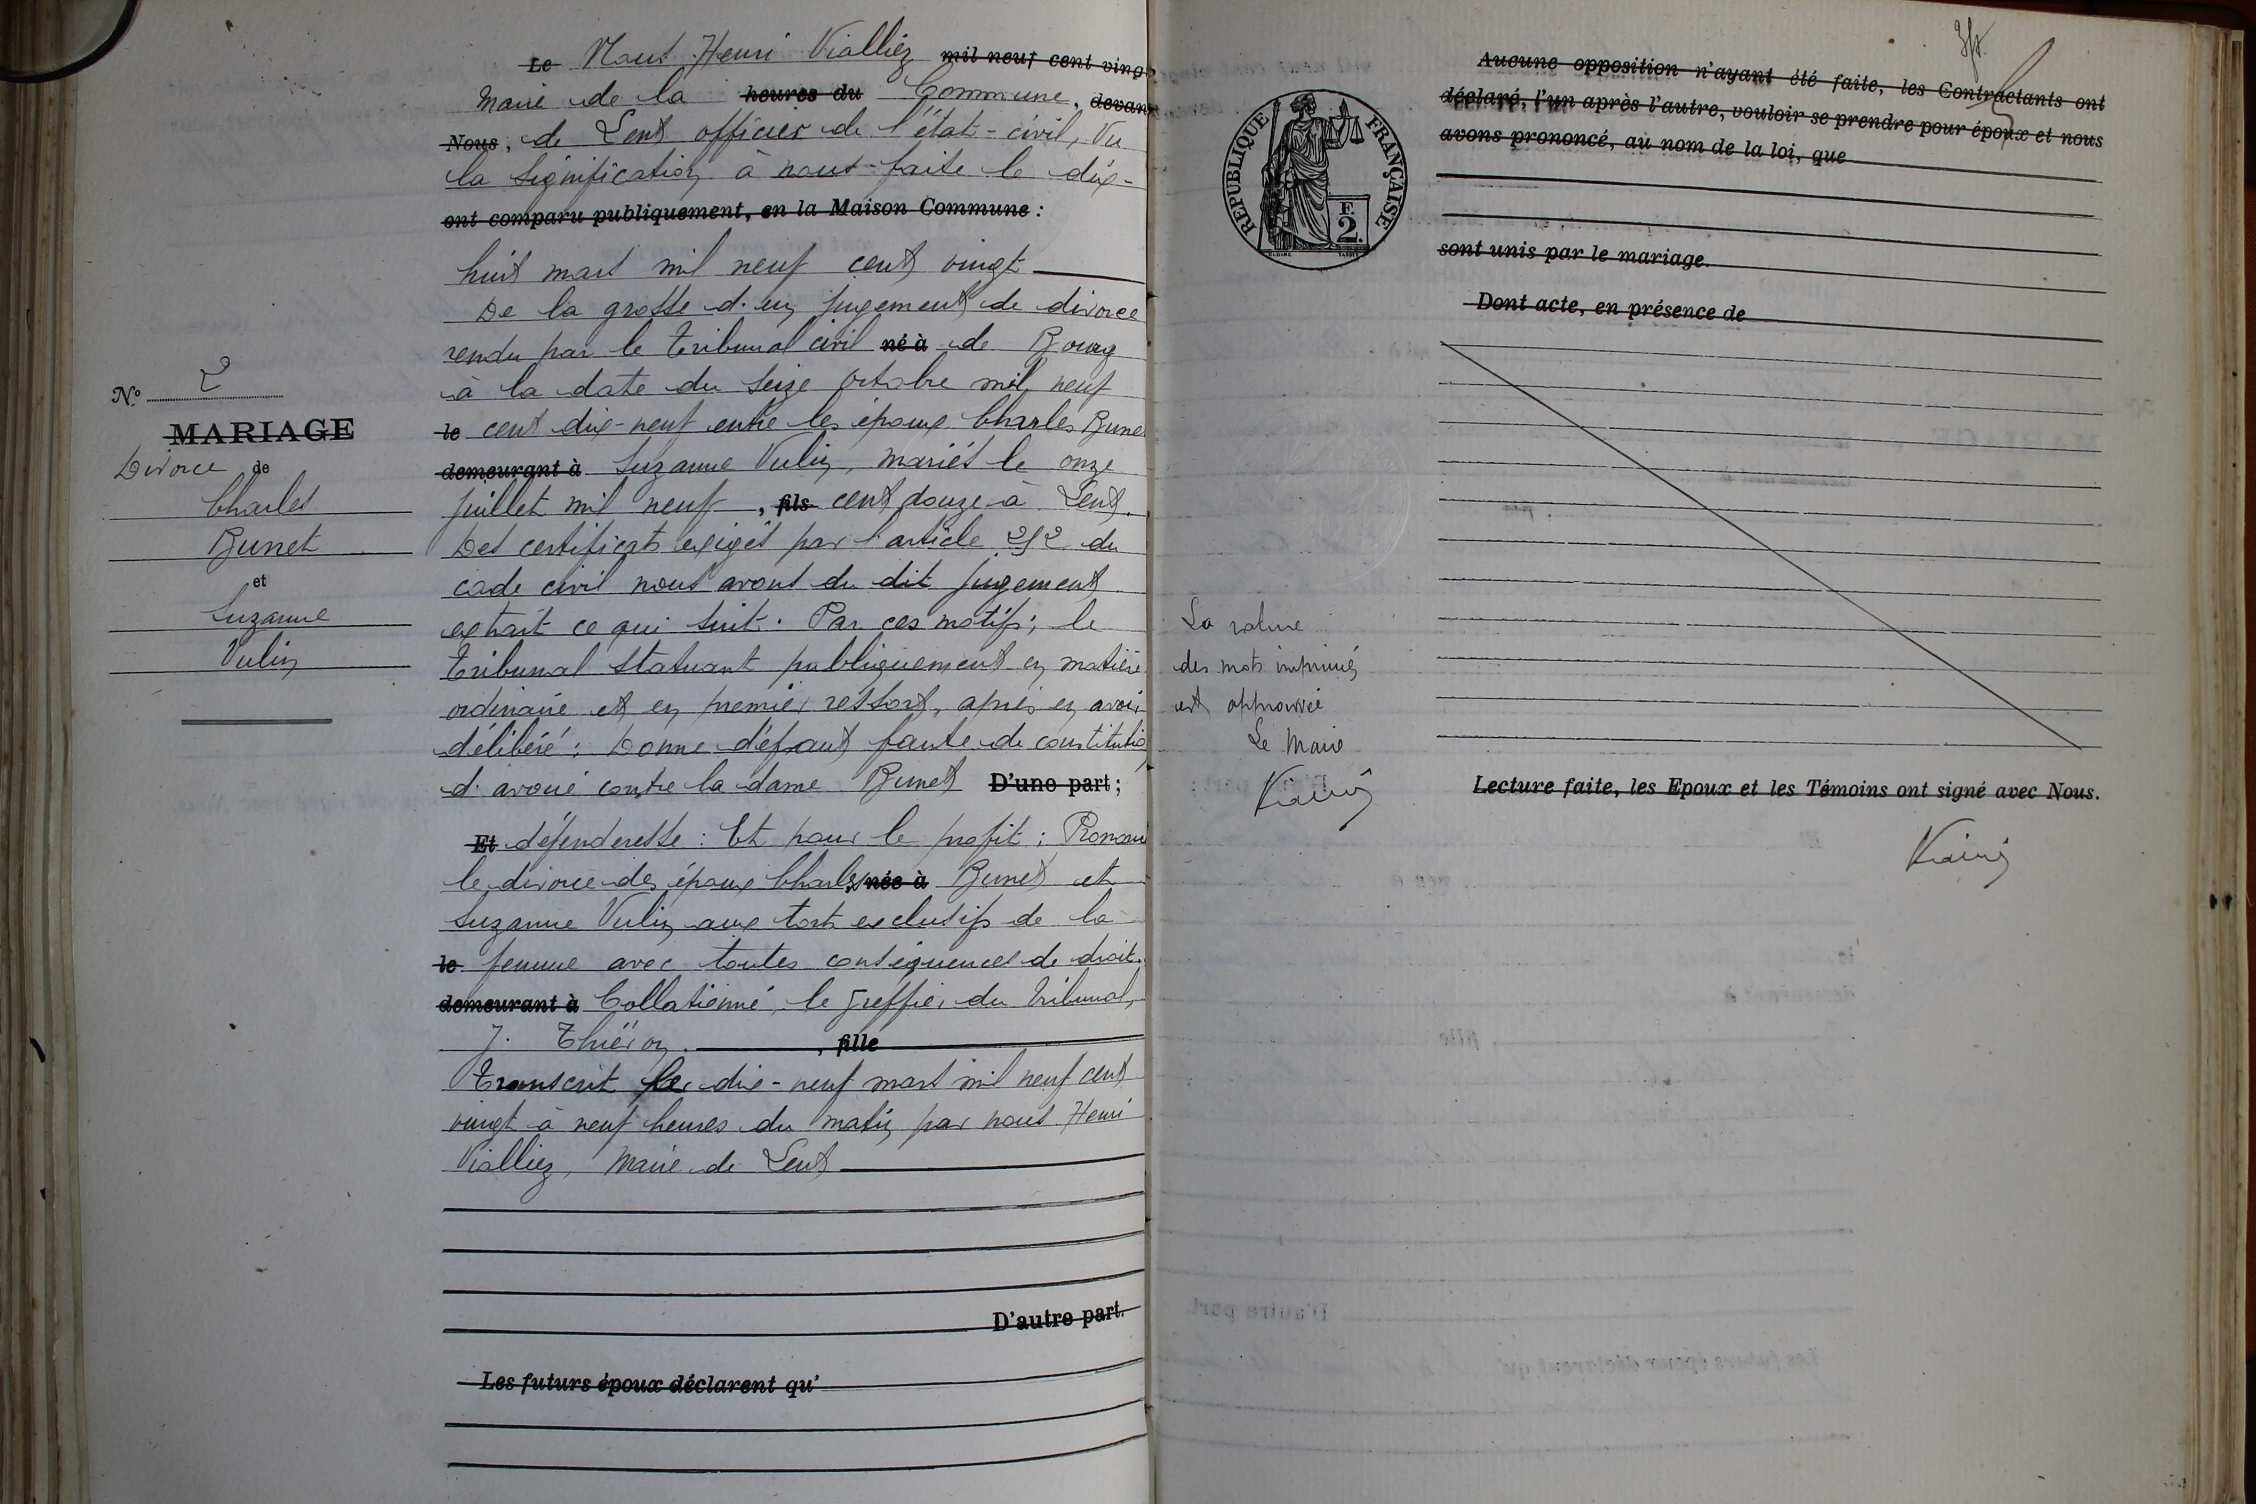 N.° 2
MARIAGE
Divorce de
Charles
Bunet
et
Suzanne
Vulin
Le Nous Henri Vialliez mil neuf cent vingt
Maire de la heures du Commune, devant
Nous, de Lent officier de l'état-civil, Vu
la signification à nous faite le dix-
ont comparu publiquement, en la Maison Commune :
huit mars mil neuf cent vingt
De la grosse d'un jugement de divorce
rendu par le tribunal civil né à de Bourg
à la date du seize octobre mil neuf
le cent dix-neuf entre les époux Charles Bunet
demeurant à Suzanne Vulin, mariés le onze
juillet mil neuf , fils cent douze à Lent.
Des certificats exigés par l'article 252 du
code civil nous avons du dit jugement
extrait ce qui suit. Par ces motifs, le
Tribunal statuant publiquement en matière
ordinaire et en premier ressort, après en avoir
délibéré ; Donne défaut faute de constitution
d'avoué contre la dame Bunet D'une part ;
Et défenderesse : Et pour le profit ; Prononce
le divorce des époux Charles née à Bunet et
Suzanne Vulin aux torts exclusifs de la
le femme avec toutes conséquences de droit.
demeurant à Collationné, le greffier du tribunal,
J. Thiéron. , fille
Transcrit le dix-neuf mars mil neuf cent
vingt à neuf heures du matin par nous Henri
Vialliez, Maire de Lent
D'autre part.
Les futurs époux déclarent qu'
RÉPUBLIQUE FRANÇAISE
F.
2.
La rature
des mots imprimés
est approuvée
Le Maire
Aucune opposition n'ayant été faite, les Contractants ont
déclaré, l'un après l'autre, vouloir se prendre pour époux et nous
avons prononcé, au nom de la loi, que
sont unis par le mariage.
Dont acte, en présence de
Lecture faite, les Epoux et les Témoins ont signé avec Nous.